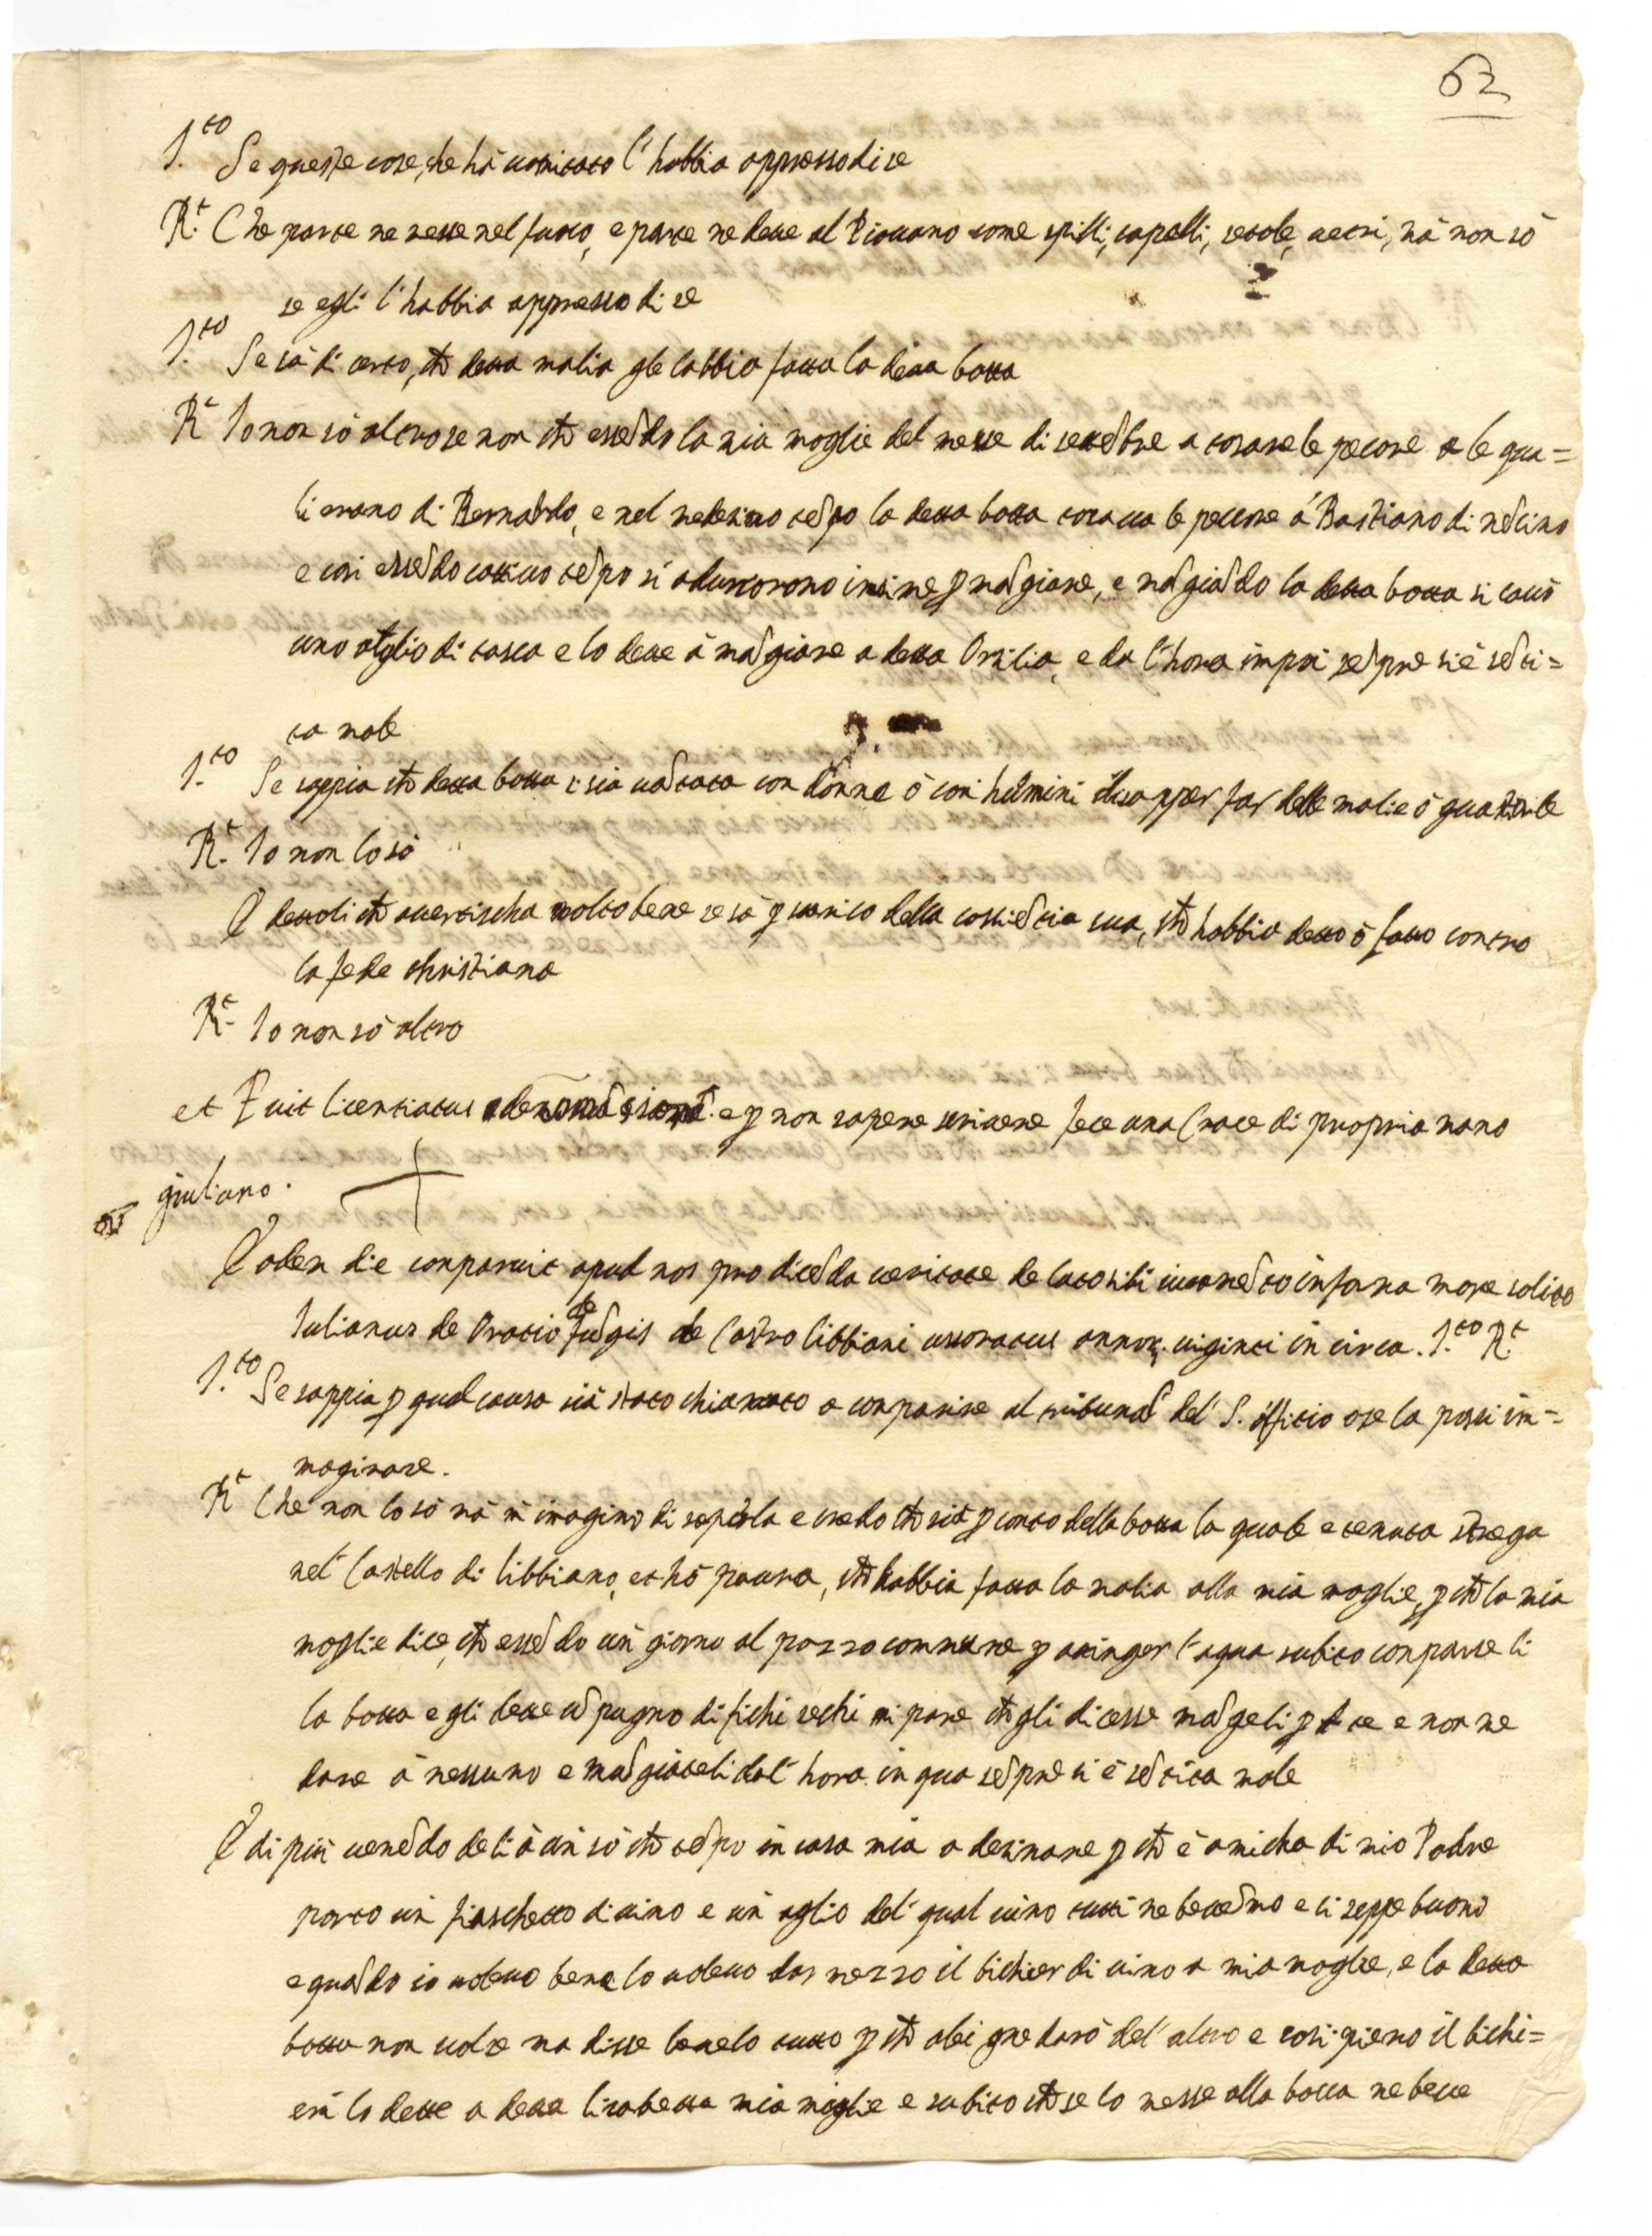 62
I.to Se queste cose, che hà vomitato l'habbia appresso di se
R.t Che parte ne messe nel fuoco, e parte ne dette al Piovano come spilli, capelli, setole, vetri, mà non sò
se egli l'habbia appresso di se
I.to Se sà di certo, ch detta malia gle l'abbia fatta la detta botta
R.t Io non sò altro se non ch essēdo la mia moglie del messe di settēbre a tosare le pecore le qua=
li erano di Bernardo, e nel medesimo tēpo la detta botta tosava le pecore á Bastiano di
e cosi essēdo cattivo tēpo si aduntorono insime p māgiare, e māgiādo la detta botta si cavò
uno aglio di tasca e lo dette à māgiare a detta Orsilia, e da l'hora impoi sēpre si è sēti=
ta male
I.to Se sappia ch detta botta si sia vātata con donne ò con hūmini per far delle malie ò guastarle
R.t Io non lo sò
E dettoli ch avertischa molto bene se sà p scarico della cosciētia sua, ch habbia detto ò fatto contro
la fede christiana
R.t Io non sò altro
et Fuit licentiatus e p non sapere scrivere fece una Croce di propria mano
giuliano.
Eadem die conparuit apud nos pro dicēda veritate delato sibi iuramēto in forma more solito
Iulianus de Oratio de Fūgis de Castro libbiani uxoratus annor. viginti in circa. I.to R.t
I.to Se sappia p qual causa sia stato chiamato a conparire al tribunal del S. officio o se la possi im=
maginare.
R.t Che non lo sò mà m'imagino di sapirla e credo ch sia p conto della botta la quale e tenuta strega
nel Castello di libbiano, et hò paura, ch habbia fatta la malia alla mia moglie, p ch la mia
moglie dice, ch essēdo un giorno al pozzo commune p atinger l'aqua subito conparse li
la botta e gli dette ū pugno di fichi sechi mi pare ch gli dicesse māgeli p te e non ne
dare à nessuno e māgiateli dal' hora in qua sēpre si è sētita male
E di più venēdo de li à un sò ch tēpo in casa mia a desinare p ch è amicha di mio Padre
porto un fiaschetto di vino e un aglio del' qual vino tutti ne bevēmo e ci seppe buono
e quādo io volevo bere lo volevo dar mezzo il bichier di vino a mia moglie, e la detta
botta non volse ma disse bevelo tutto p ch alei gne darò del' altro e cosi pieno il bichi=
eri lo dette a detta lisabetta mia moglie e subito ch se lo messe alla bocca ne bevve